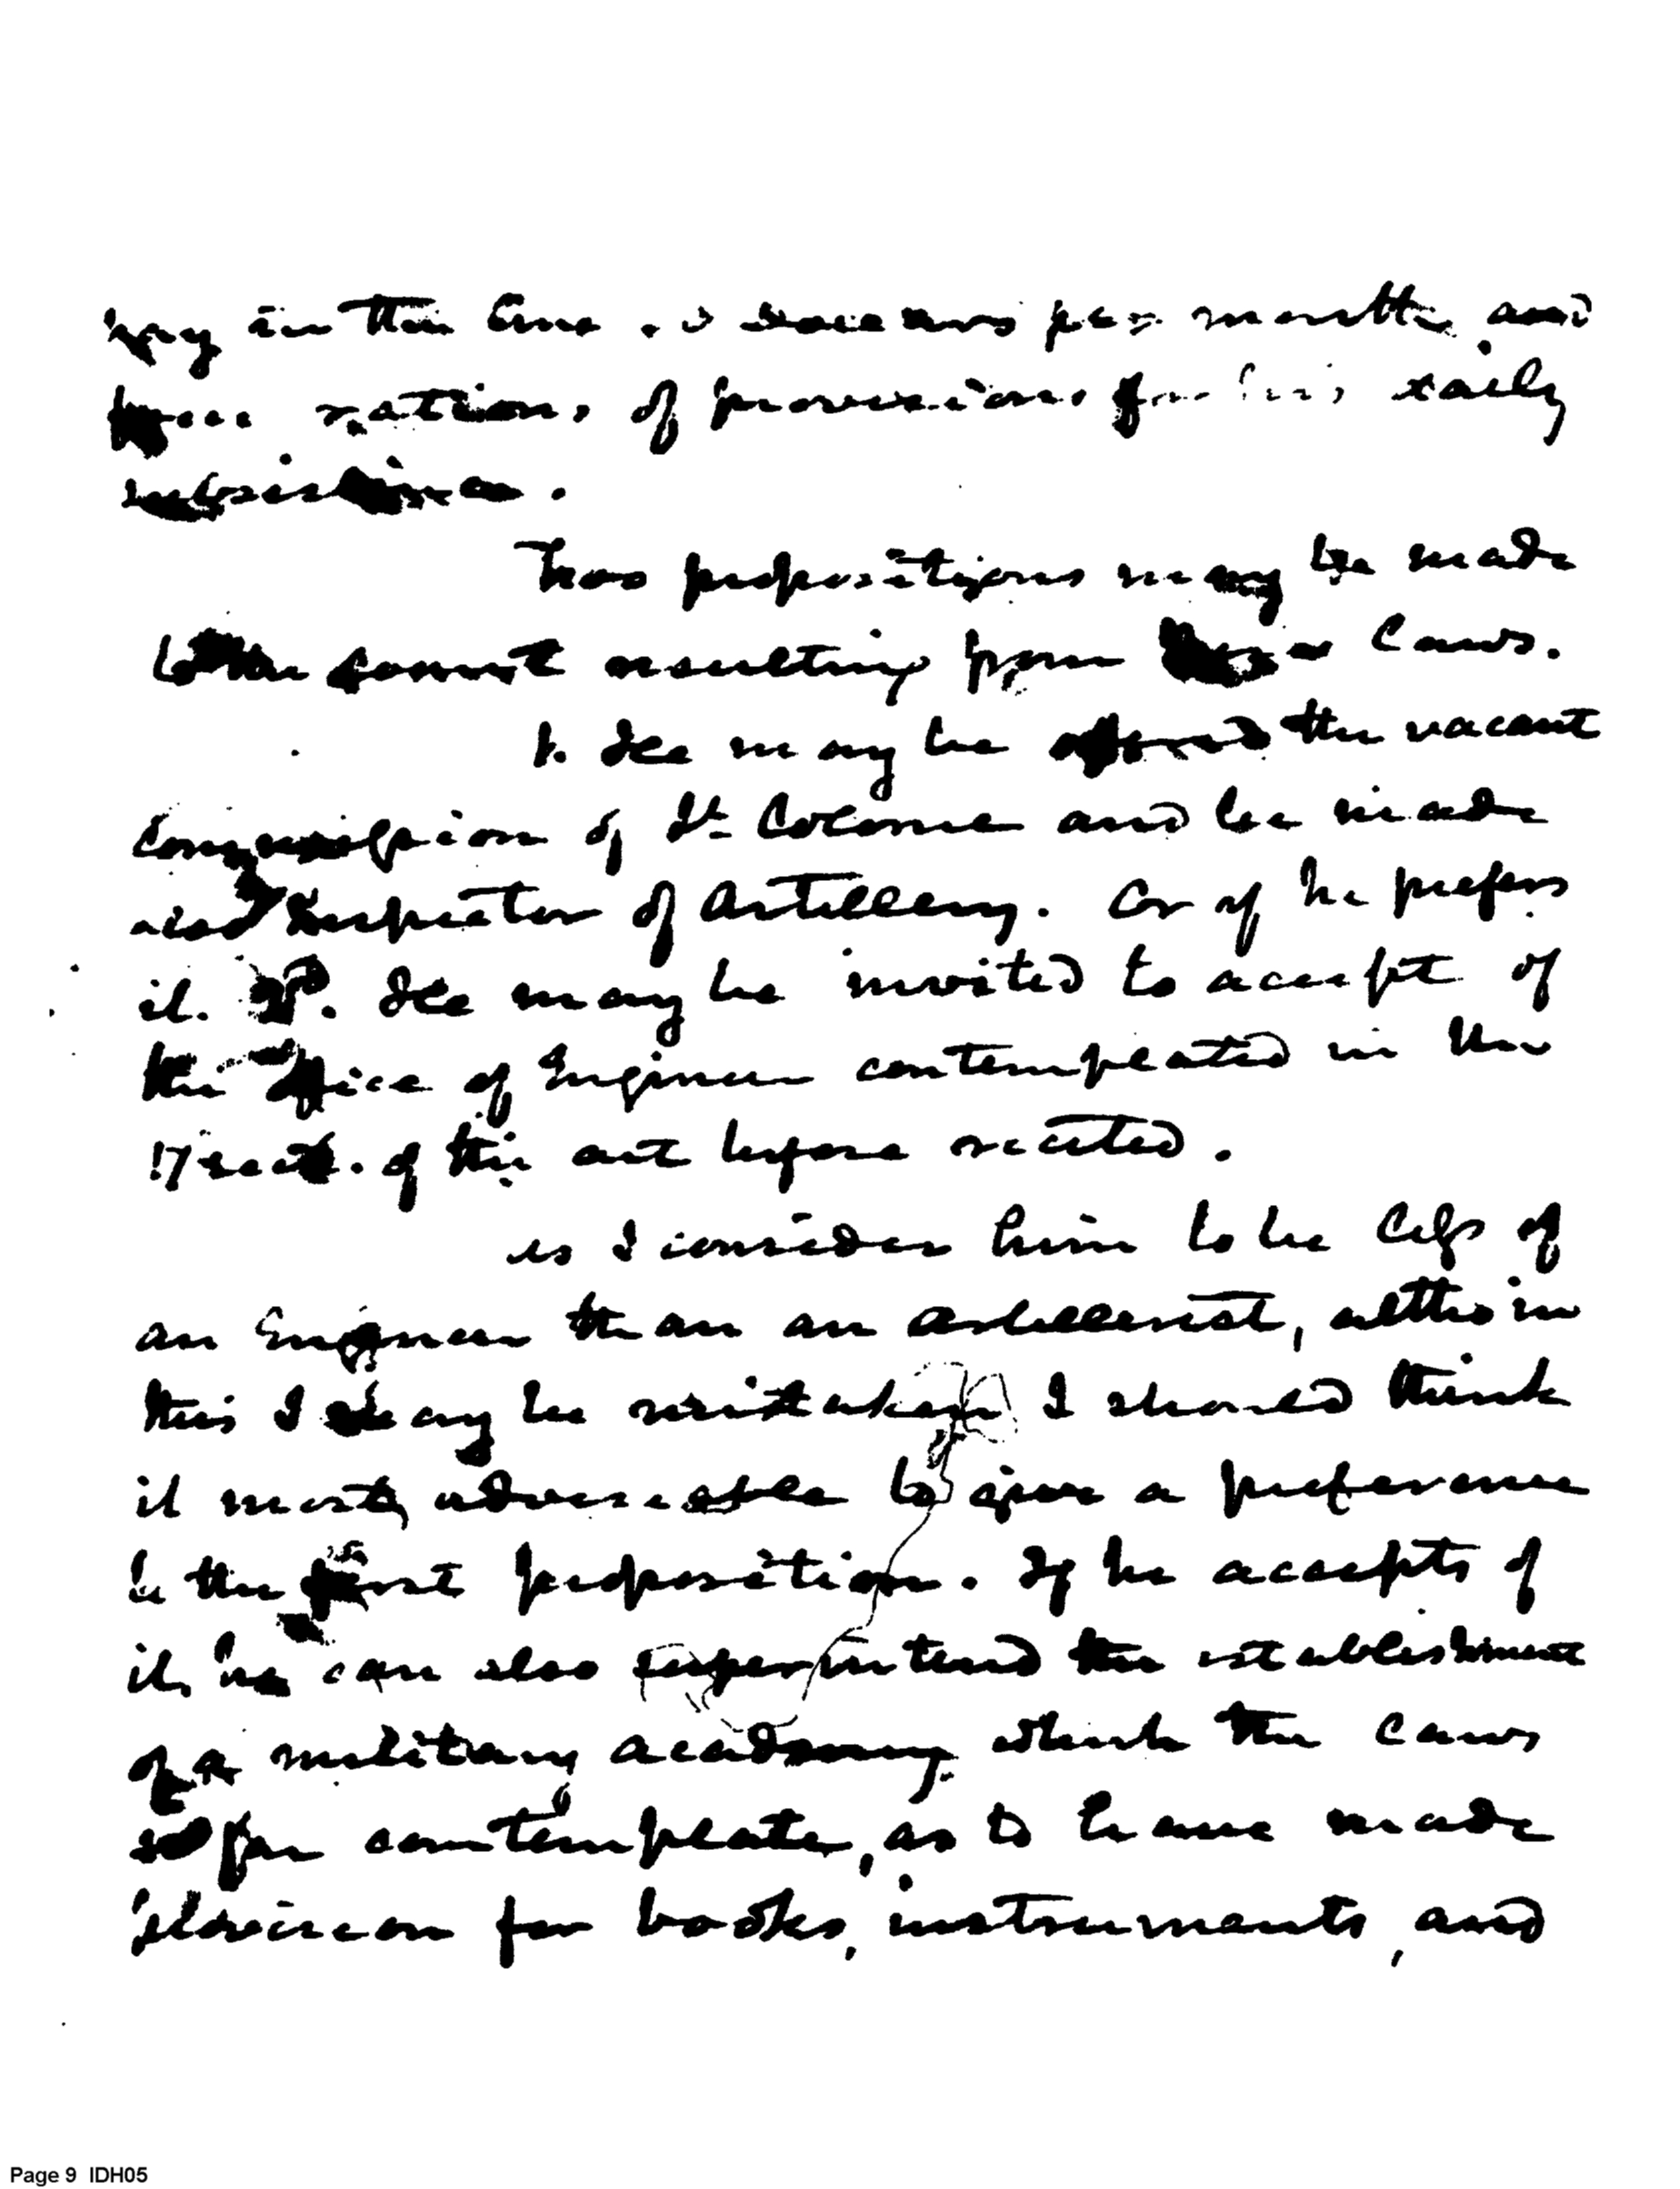 pay in this line is dollars per month, and
rations of provisions for his daily
subsistence.
Two propositions may be made
to the Count resulting from these laws.
1. He may be offered the vacant
commission of Lt Colonel and be made
Inspector of Artillery. Or if he prefers
it. 2d. He may be invited to accept of
the office of Engineer contemplated in the
17 sect. of the act before recited.
As I consider him to be less of
an Engineer than an artillerist, altho in
this I may be mistaken I should think
it most adviseable to give a preference
to the first proposition. If he accepts of
it, he can also superintend the establishment
of a military academy which the laws
so far contemplate, as to have made
provision for books, instruments, and
Page 9 IDH05